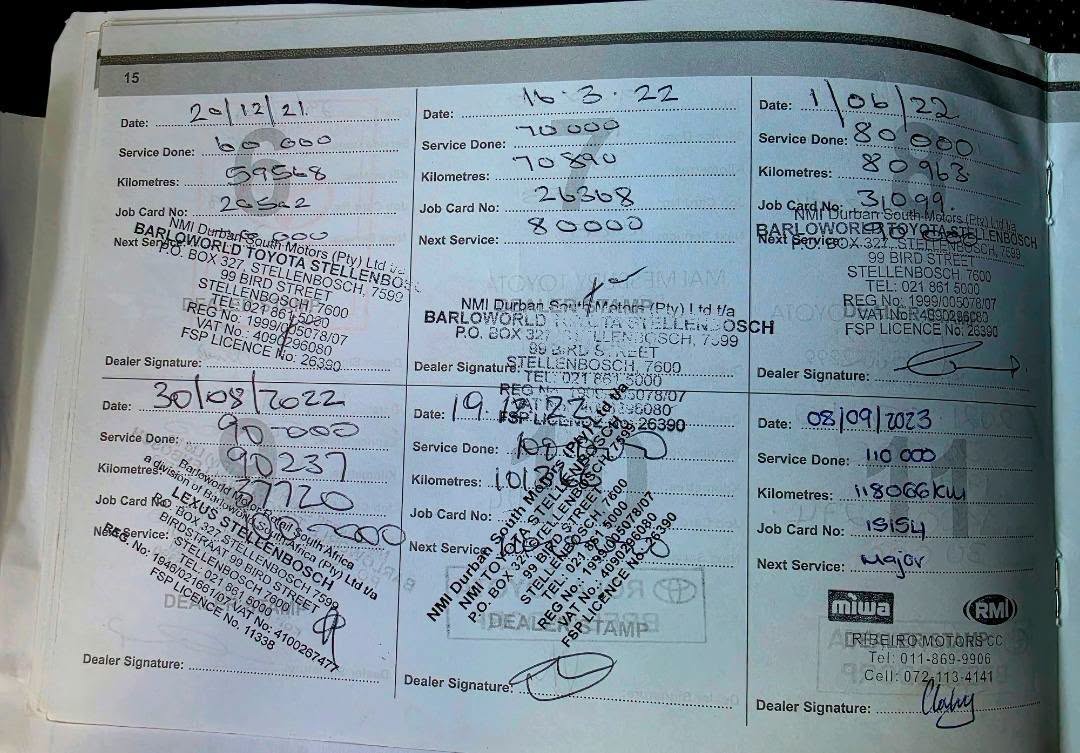 15
Date: 20/12/21
Service Done: 60 000
Kilometres: 59568
Job Card No:
Next Service:
NMI Durban South Motors (Pty) Ltd t/a
BARLOWORLD TOYOTA STELLENBOSCH
P.O. BOX 327, STELLENBOSCH, 7599
99 BIRD STREET
STELLENBOSCH, 7600
TEL: 021 861 5000
REG No: 1999/005078/07
VAT No: 4090296080
FSP LICENCE No: 26390
Dealer Signature:
Date: 16.3.22
Service Done: 70 000
Kilometres: 70890
Job Card No: 26368
Next Service: 80000
NMI Durban South Motors (Pty) Ltd t/a
BARLOWORLD TOYOTA STELLENBOSCH
P.O. BOX 327, STELLENBOSCH, 7599
99 BIRD STREET
STELLENBOSCH, 7600
TEL: 021 861 5000
REG No: 1999/005078/07
FSP LICENCE No: 26390
Dealer Signature:
Date: 1/06/22
Service Done: 80 000
Kilometres: 80963
Job Card No: 31099.
Next Service:
NMI Durban South Motors (Pty) Ltd t/a
BARLOWORLD TOYOTA STELLENBOSCH
P.O. BOX 327, STELLENBOSCH, 7599
99 BIRD STREET
STELLENBOSCH 7600
TEL: 021 861 5000
REG No: 1999/005078/07
VAT No: 4090296080
FSP LICENCE No: 26390
Dealer Signature:
Date: 30/08/2022
Service Done: 90-000
Kilometres: 90237
Job Card No: 37720
Next Service:
Barloworld Motor Retail South Africa
a division of Barloworld South Africa (Pty) Ltd t/a
LEXUS STELLENBOSCH
P.O. BOX 327, STELLENBOSCH 7599
BIRDSTRAAT 99 BIRD STREET
STELLENBOSCH 7600
TEL: 021 861 5000
REG. No: 1946/021661/07 VAT No: 4100267477
FSP LICENCE No. 11338
DEALER STAMP
Dealer Signature:
Date: 19.
Service Done:
Kilometres:
Job Card No:
Next Service:
NMI Durban South Motors (Pty) Ltd t/a
NMI TOYOTA STELLENBOSCH
P.O. BOX 327, STELLENBOSCH, 7599
99 BIRD STREET
STELLENBOSCH, 7600
TEL: 021 861 5000
REG No: 1999/005078/07
VAT No: 4090296080
FSP LICENCE No: 26390
DEALER STAMP
Dealer Signature:
Date: 08/09/2023
Service Done: 110 000
Kilometres: 118066km
Job Card No: 15154
Next Service: Major
miwa RMI
RIBEIRO MOTORS CC
Tel: 011-869-9906
Cell: 072-113-4141
Dealer Signature: